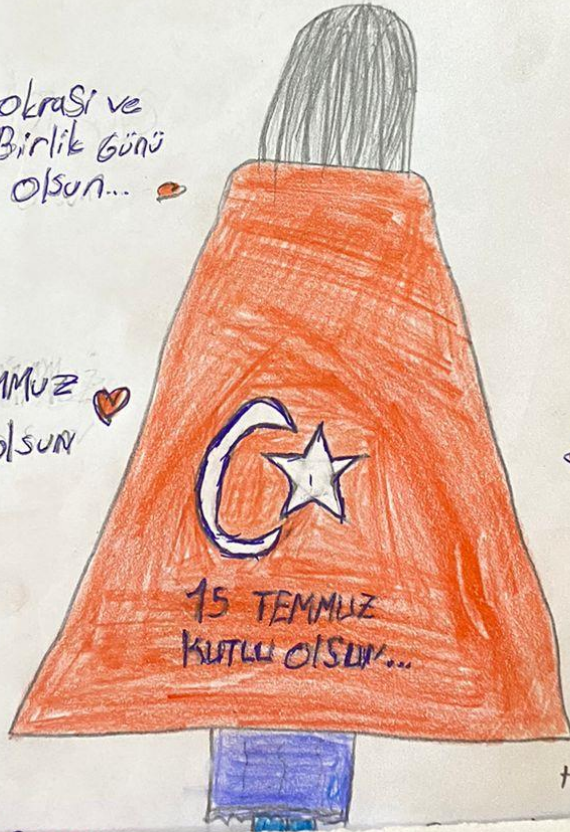 okrasi ve
Birlik Günü
olsun...
MMUZ
olsun
15 TEMMUZ
KUTLU OlSUN...